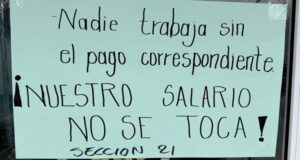 -Nadie trabaja sin
el pago correspondiente.
¡NUESTRO SALARIO
NO SE TOCA!
SECCION 21